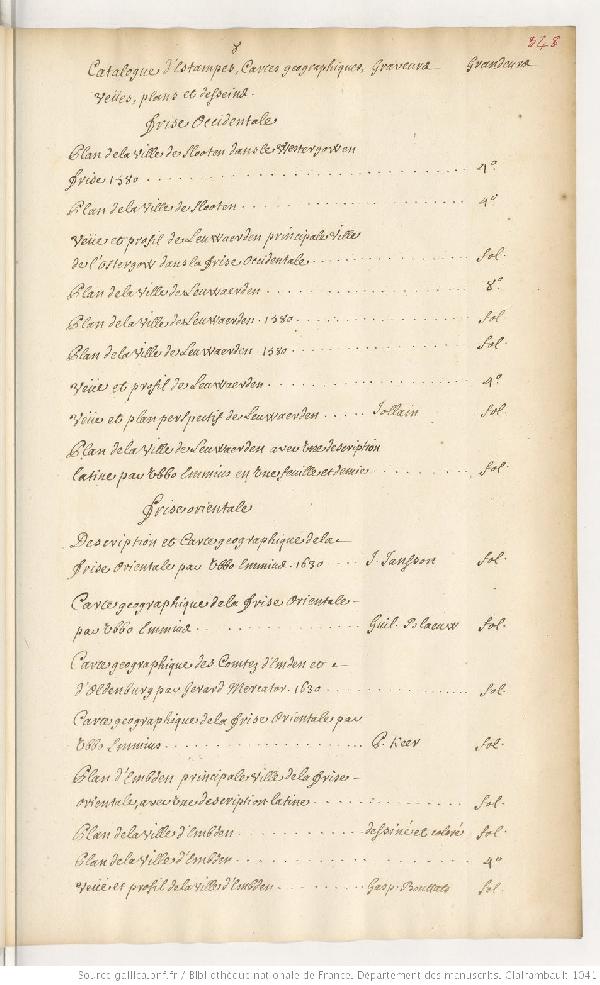 8
348
Catalogue d'Estampes, Cartes geographiques, Graveurs Grandeurs
Veües, plans et desseins.
Frise Occidentale
Plan de la Ville de Slooten dans le Westergow en
Frise 1580 4°
Plan de la Ville de Slooten 4°
Veüe et profil de Leuwaerden principale Ville
de l'Ostergow dans la Frise Occidentale fol.
Plan de la Ville de Leuwaerden 8°
Plan de la Ville de Leuwaerden. 1580 fol.
Plan de la Ville de Leuwaerden 1580 fol.
Veüe et profil de Leuwaerden 4°
Veüe et plan perspectif de Leuwaerden Jollain fol.
Plan de la Ville de Leuwaerden avec Une description
latine par Ubbo Emmius en Une feuille et demie fol.
Frise orientale
Description et Carte geographique de la
Frise Orientale par Ubbo Emmius. 1630 J. Jansson fol.
Carte geographique de la Frise Orientale
par Ubbo Emmius Guil. Blaeuw fol.
Carte geographique des Comtez d'Emden et
d'Oldenburg par Gerard Mercator. 1630 fol.
Carte geographique de la Frise Orientale par
Ubbo Emmius P. Keer fol.
Plan d'Embden principale Ville de la Frise
orientale, avec Une description latine fol.
Plan de la Ville d'Embden dessiné et coloré fol.
Plan de la Ville d'Embden 4°
Veüe et profil de la Ville d'Embden Gasp. Bouttats fol.
Source gallica.bnf.fr / Bibliothèque nationale de France. Département des manuscrits. Clairambault 1041